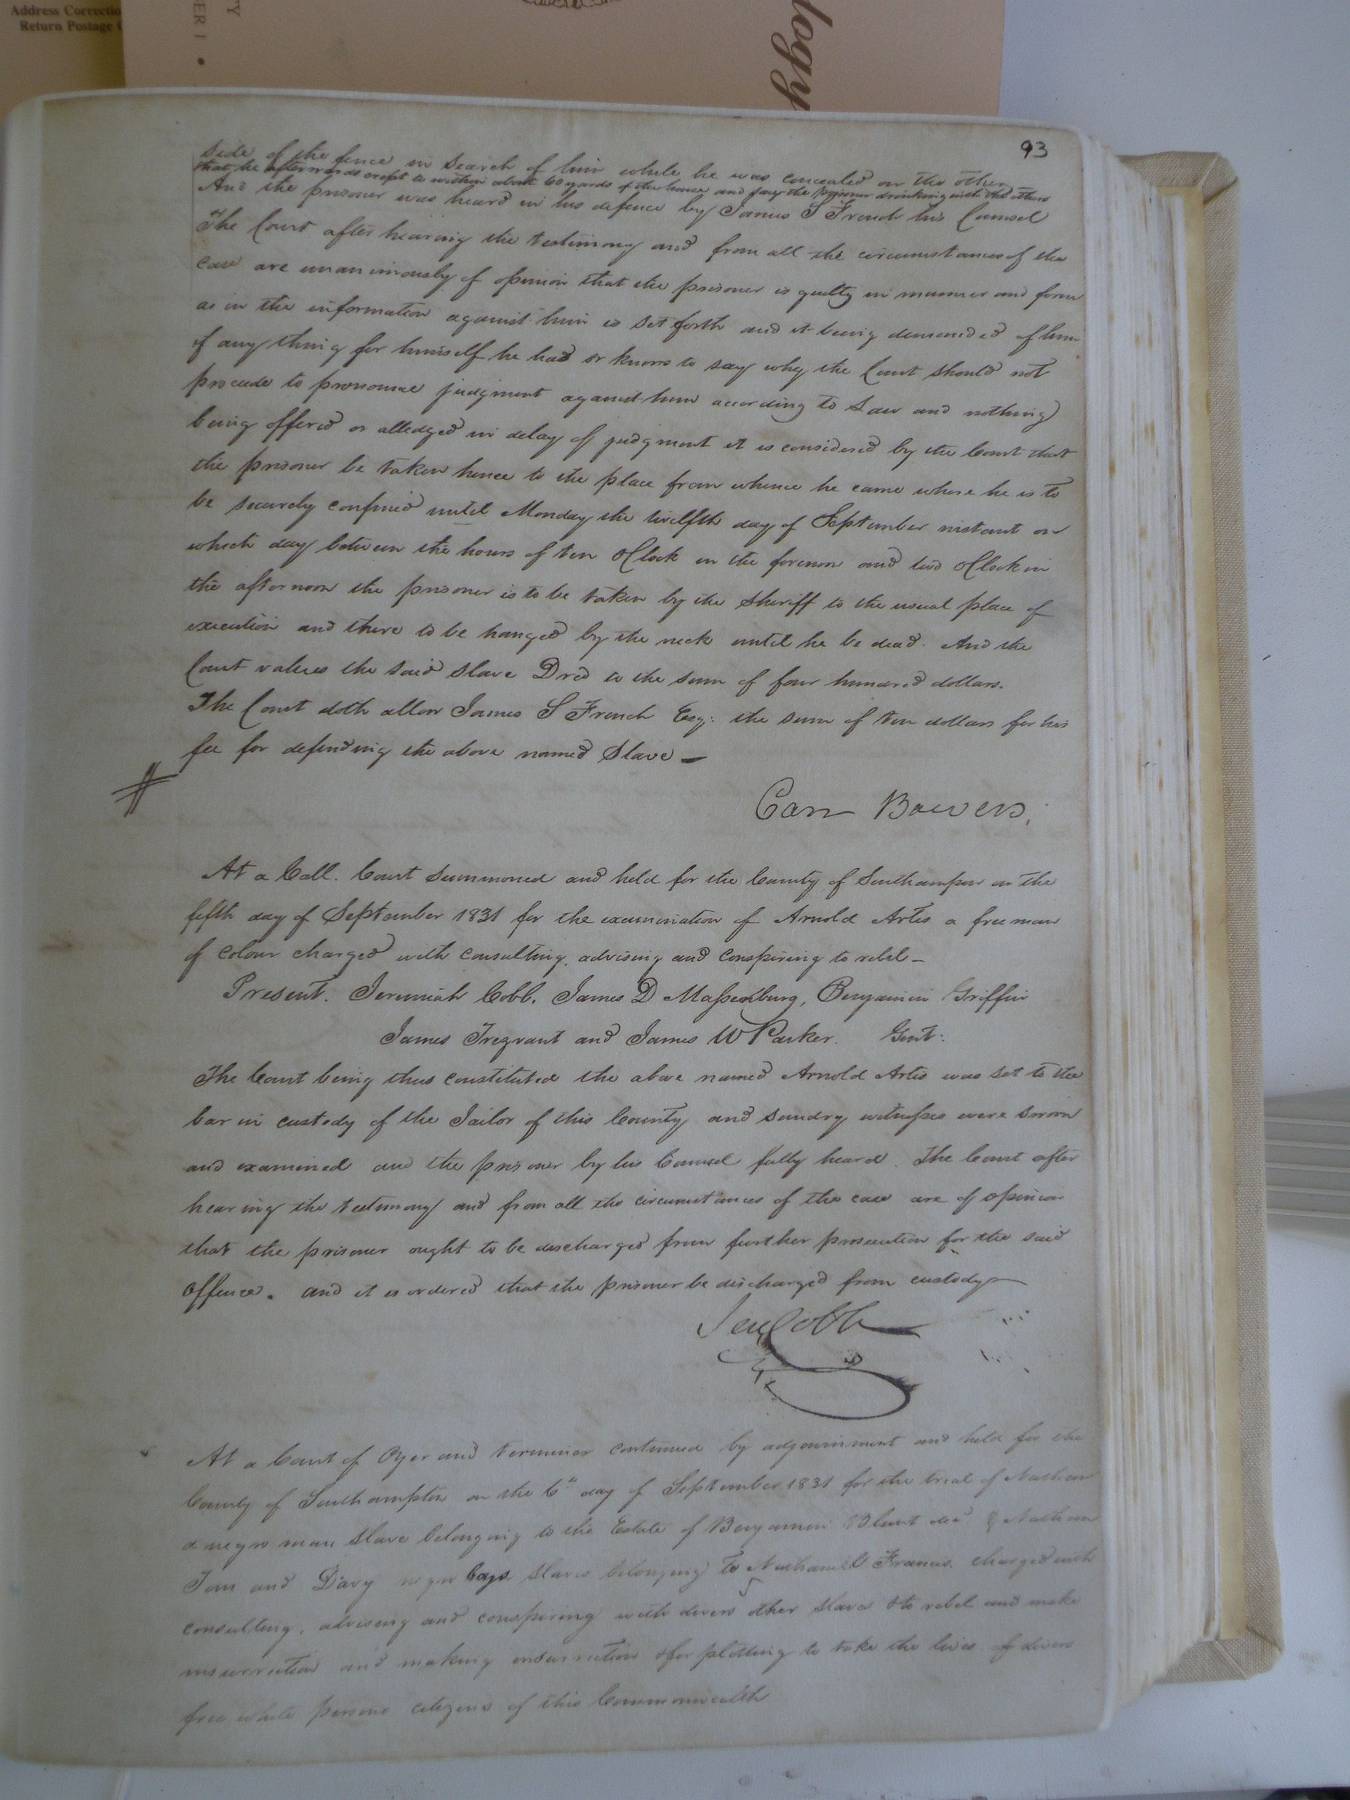 Address Correctio
Return Postage
TY
ER 1 •
logy
93
side of the fence in search of him while he was concealed on the other
that he afterwards crept to within about 60 yards of the house and saw the prisoner drinking with the others
And the prisoner was heard in his defence by James S French his Counsel
The Court after hearing the testimony and from all the circumstances of the
case are unanimously of opinion that the prisoner is guilty in manner and form
as in the information against him is set forth and it being demanded of him
if any thing for himself he had or knows to say why the Court should not
procede to pronounce judgment against him according to Law and nothing
being offered or alledged in delay of judgment it is considered by the Court that
the prisoner be taken hence to the place from whence he came where he is to
be securely confined until Monday the twelfth day of September instant on
which day between the hours of ten oClock in the forenoon and two oClock in
the afternoon the prisoner is to be taken by the Sheriff to the usual place of
execution and there to be hanged by the neck until he be dead. And the
Court values the said slave Dred to the sum of four hundred dollars.
The Court doth allow James S French Esq: the sum of ten dollars for his
fee for defending the above named Slave —
Carr Bowers.
At a Call. Court summoned and held for the County of Southampton on the
fifth day of September 1831 for the examination of Arnold Artis a free man
of colour charged with consulting, advising and conspiring to rebel —
Present. Jeremiah Cobb, James D Massenburg, Benjamin Griffin
James Trezvant and James W Parker. Gent:
The Court being thus constituted the above named Arnold Artis was set to the
bar in custody of the Jailor of this County and sundry witnesses were sworn
and examined and the prisoner by his Counsel fully heard. The Court after
hearing the testimony and from all the circumstances of the case are of opinion
that the prisoner ought to be discharged from further prosecution for the said
offence. and it is ordered that the prisoner be discharged from custody —
Jer Cobb
At a Court of Oyer and terminer continued by adjournment and held for the
County of Southampton on the 6th day of September 1831 for the trial of Nathan
a negro man slave belonging to the Estate of Benjamin Blunt decd & Nathan
Tom and Davy negro boys slaves belonging to Nathaniel Francis charged with
consulting, advising and conspiring with divers other slaves to rebel and make
insurrection and making insurrection & for plotting to take the lives of divers
free white persons citizens of this Commonwealth